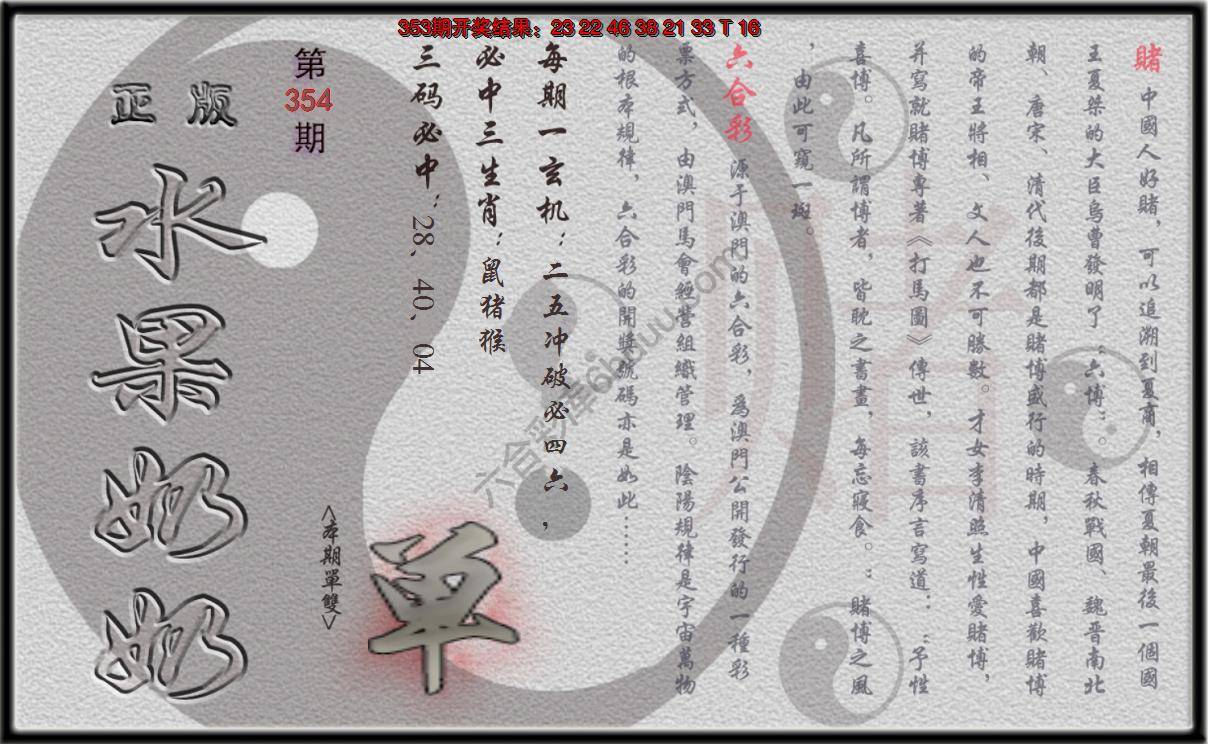 353期开奖结果：23 22 46 38 21 33 T 16
賭 中國人好賭，可以追溯到夏商，相傳夏朝最後一個國
王夏桀的大臣烏曹發明了“六博”。春秋戰國、魏晋南北
朝、唐宋、清代後期都是賭博盛行的時期，中國喜歡賭博
的帝王將相、文人也不可勝數。才女李清照生性愛賭博，
并寫就賭博專著《打馬圖》傳世，該書序言寫道：“予性
喜博。凡所謂博者，皆耽之書晝，每忘寢食。：賭博之風
，由此可窺一斑。
六合彩 源于澳門的六合彩，爲澳門公開發行的一種彩
票方式，由澳門馬會經營組織管理。陰陽規律是宇宙萬物
的根本規律，六合彩的開獎號碼亦是如此……
每期一玄机：二五冲破必四六，
必中三生肖：鼠猪猴
三码必中：28、40、04
第
354
期
正版
水果奶奶
<本期單雙>
单
六合彩库6hduu.com